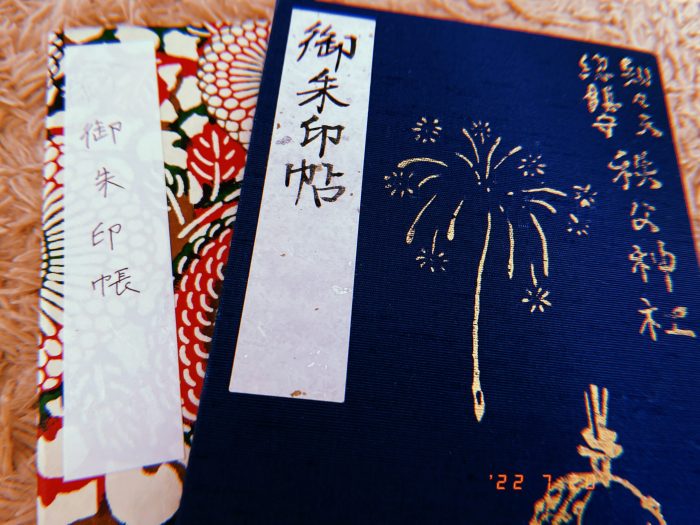 御朱印帳
御朱印帖
知々夫
総鎮守
秩父神社
'22 7